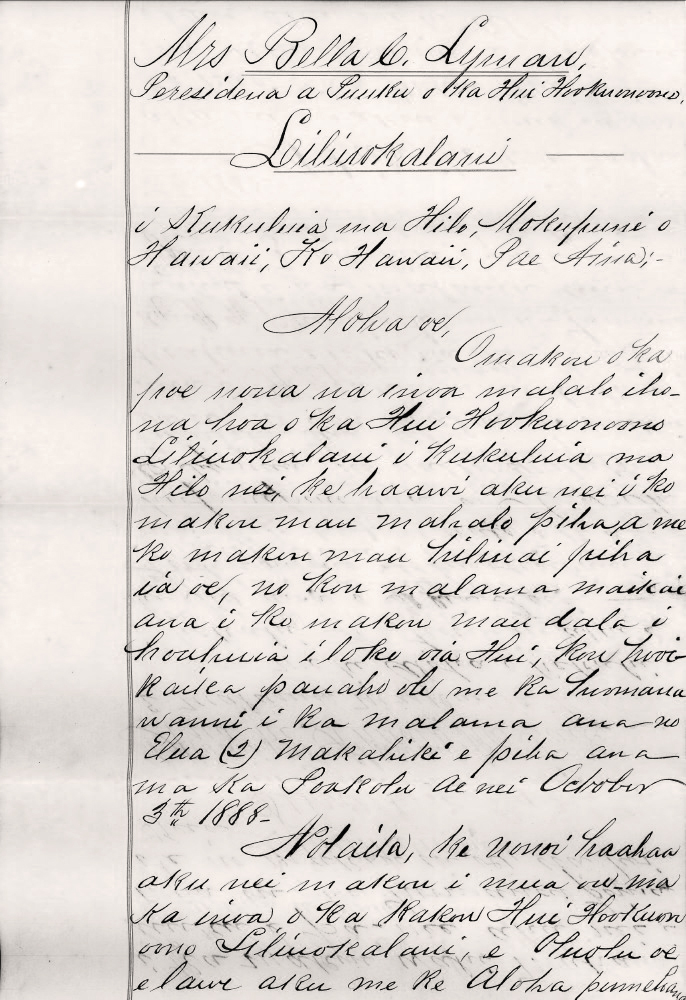 Mrs Bella C. Lyman,
Peresidena a Puuku o Ka Hui Hookuonoono,
Liliuokalani
i Kukuluia ma Hilo, Mokupuni o
Hawaii, Ko Hawaii, Pae Aina;-
Aloha oe,
O makou o ka
poe nona na inoa malalo iho-
na hoa o ka Hui Hookuonoono
Liliuokalani i kukuluia ma
Hilo nei, ke haawi aku nei i ko
makou mau mahalo piha, a me
ko makou mau hilinai piha
ia oe, no kou malama maikai
ana i ko makou mau dala i
houluuia iloko oia Hui, kou hooi-
kaika panaho ole me ka hoomana
wanui i ka malama ana no
Elua (2) Makahiki e piha ana
ma Ka Poakolu ae nei October
3th 1888-
Nolaila, ke nonoi haahaa
aku nei makou i mua ou ma
Ka inoa o Ka Kakou Hui Hookuon
oono Liliuokalani, e Oluolu oe
e lawe aku me ke Aloha pumehana